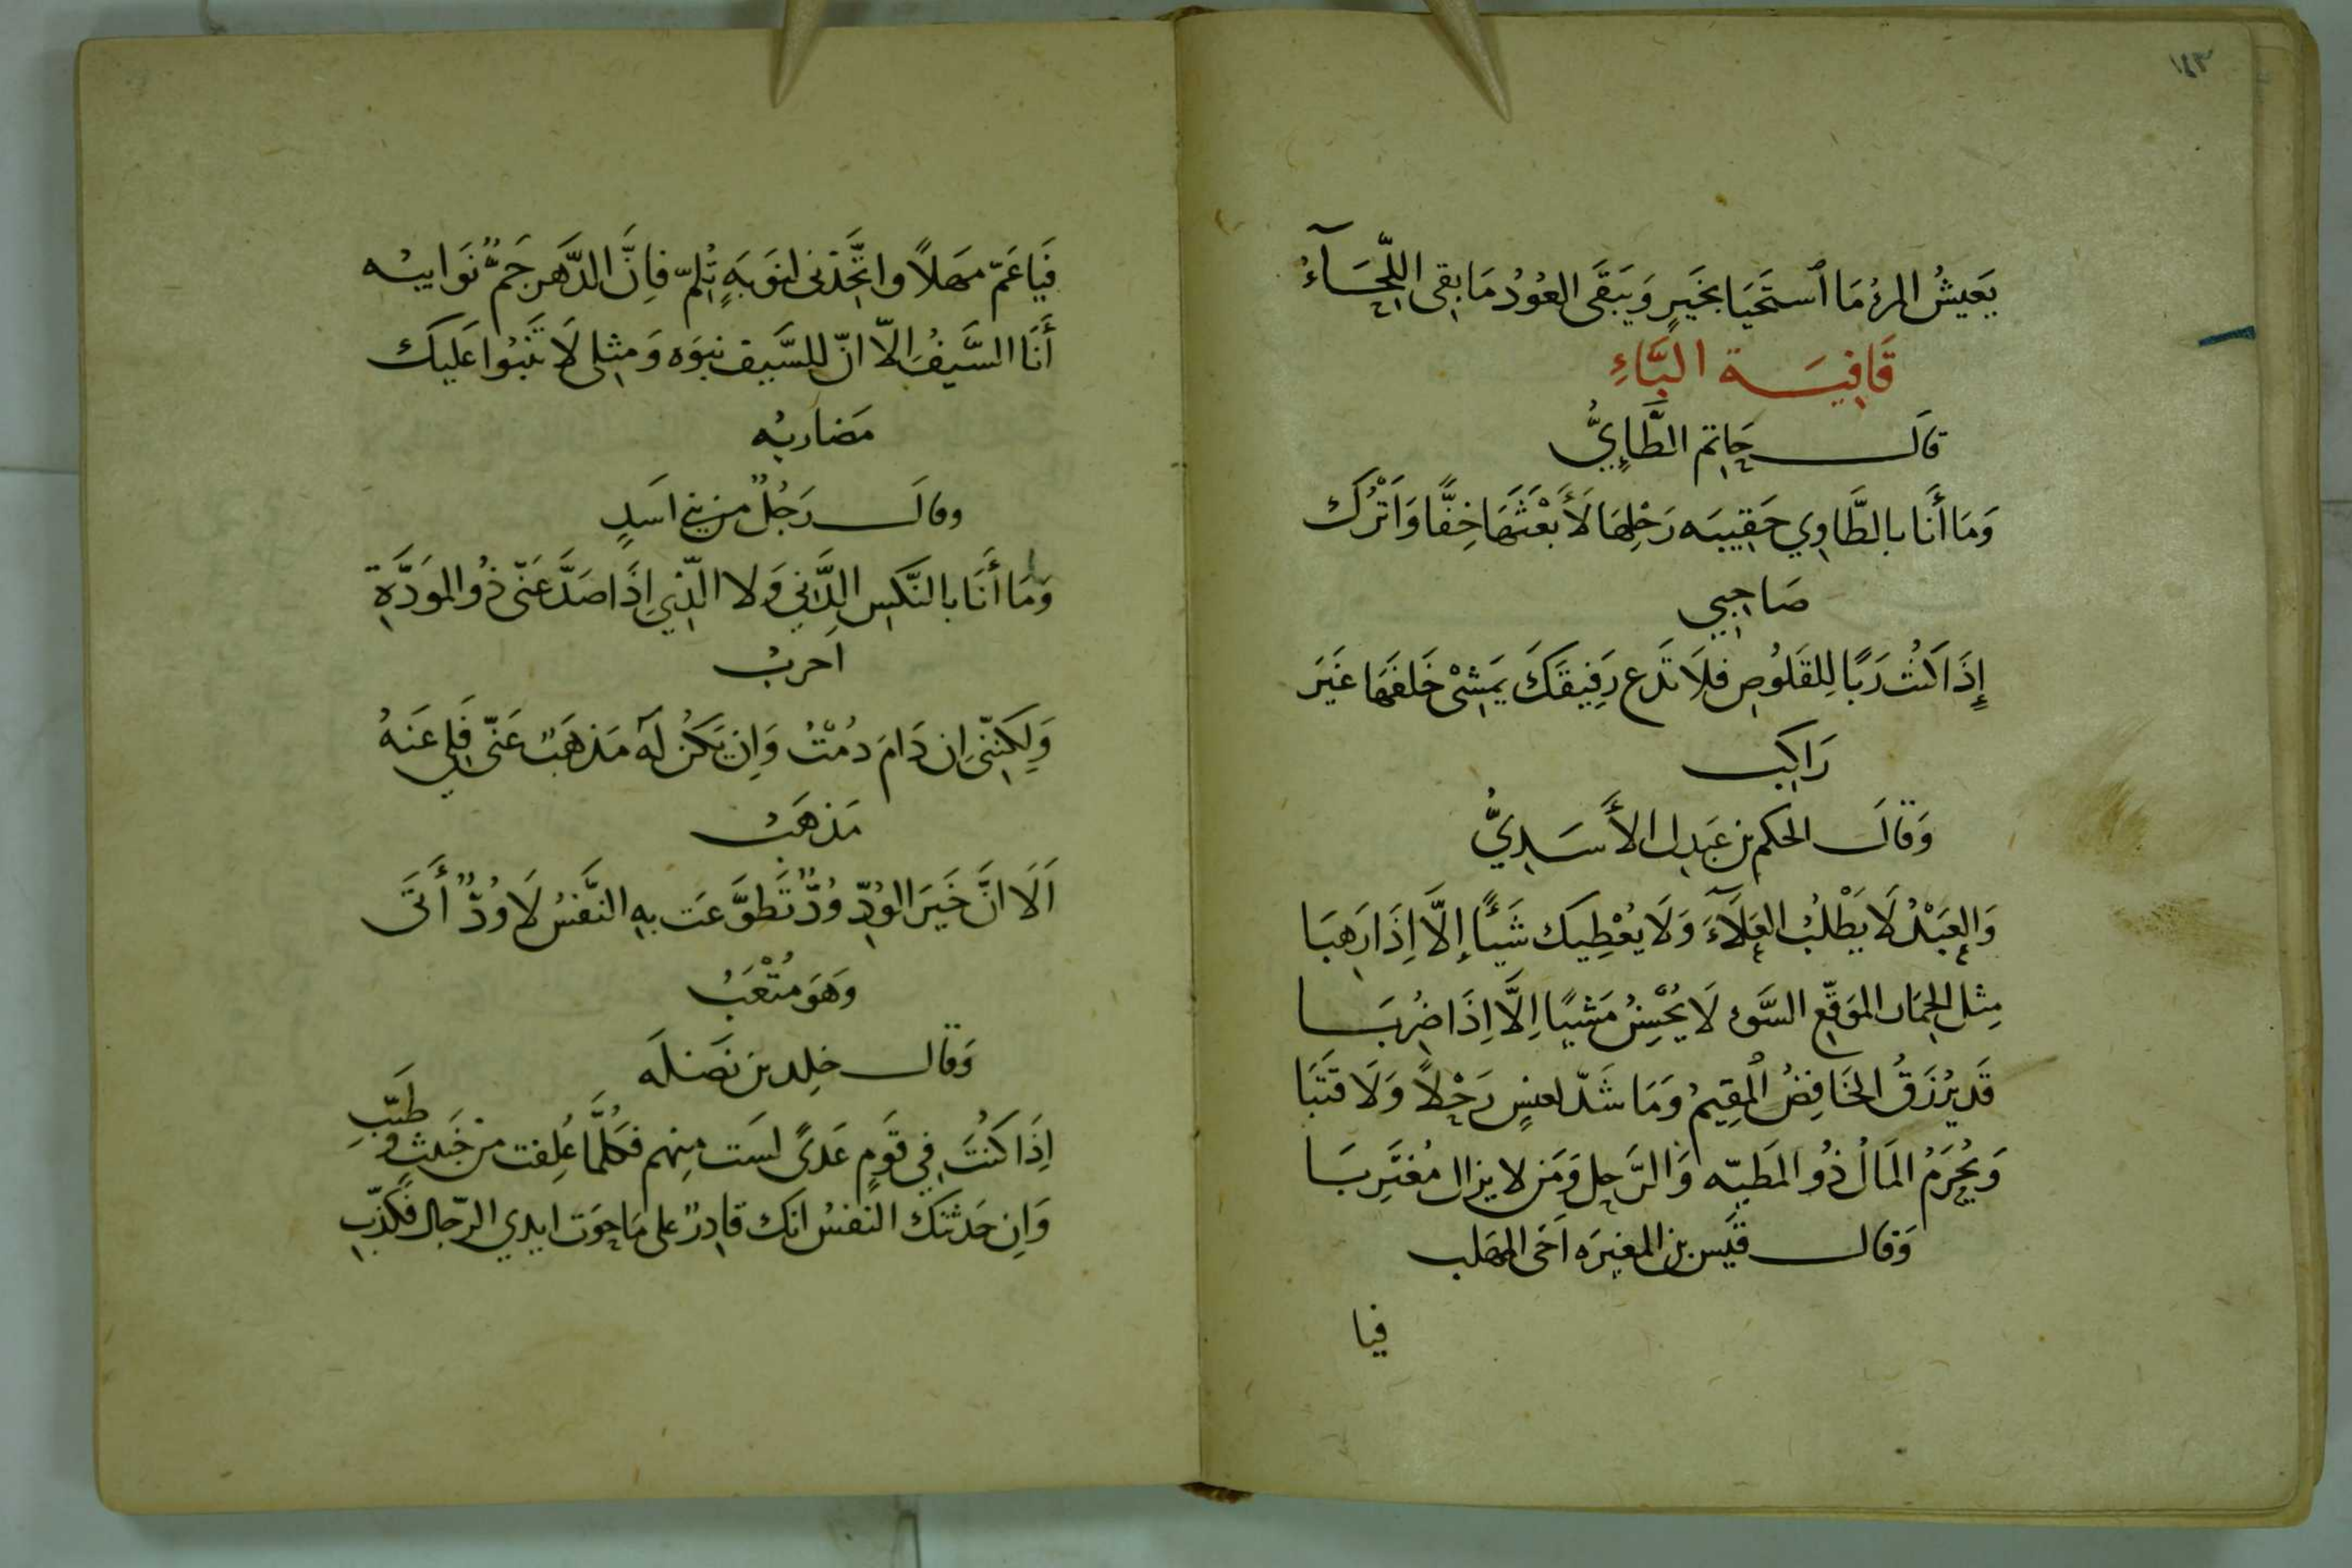 ١٤٣
يَعيشُ المرءُ مَا ٱستَحيَا بخَيرٍ وَيَبقَى العُودُ مَا بقى اللِّحَآءُ
قَافِيَة البَّاءِ
قال حَاتم الطَّايِيُّ
وَمَا أَنَا بالطَّاوِي حَقِيبَه رَحْلِهَا لَأَبْعَثَهَا خِفًّا وَاَتْرُك
صَاحِبِي
إِذَا كُنتَ رَبًّا لِلقَلُوصِ فلَا تَدَع رَفِيقَكَ يَمَشِىْ خَلفَهَا غَيرَ
رَاكِب
وَقالَ الحكم بن عَبدل الأَسَدِيُّ
وَالعَبْدُ لَا يَطْلُبُ العَلَآءَ وَلَا يُعْطِيك شَيئًا إلَّا اِذَا رَهِبَا
مِثل الحِمَار الموَقّعِ السَّوء لَا يُحْسِنُ مَشيًا اِلَّا اِذَا ضُرِبَا
قَد يُرْزَقُ الخَافِضُ المُقِيمُ وَمَا شَدّ لعنسٍ رَحْلاً وَلَا قتَبَا
وَيُحْرَمُ المَالُ ذُو المَطيّه وَالرَّحِل وَمَن لا يزال مُغتَرِبَا
وَقال قَيس بن المغيرَه اَخى المهَلب
فيا
فَيَا عَمّ مهَلاً واتَّخِذنى لنوَبَةٍ تُلِمّ فاِنَّ الدَّهر جَمٌّ نَوَايبُه
أَنَا السَّيفُ الاّ انّ للسَّيف نبوَه وَمثِلى لَا تَنبُوا عَليكَ
مَضَاربُه
وقالَ رَجُلٌ من بني اسَدٍ
وَمَا أَنَا بالنَّكسِ الدَّنِي وَلا الّذِي اِذَا صَدَّ عَنّى ذُو المَوَدَّةِ
اَحربُ
وَلكِنّنى اِن دَامَ دُمْتُ وَاِن يَكُن لَه مَذهَبٌ عَنّى فلِى عَنهُ
مَذهَبُ
اَلَا انَّ خَيرَ الوُدِّ وُدٌّ تَطَوَّعَت بهِ النَّفسُ لَا وُدٌّ أَتَى
وَهوَ مُتْعَبُ
وَقال خلِد بن نَضلَه
اِذَا كنُتَ فِي قَومٍ عَدىً لسَت مِنهم فَكُلمَّا عُلِفت من خَبَيثٍ وَطَيّبِ
وَاِن حَدثَتكَ النفسُ انك قادِرٌ على مَا حوَت ايدي الرّجال فكَذّبِ